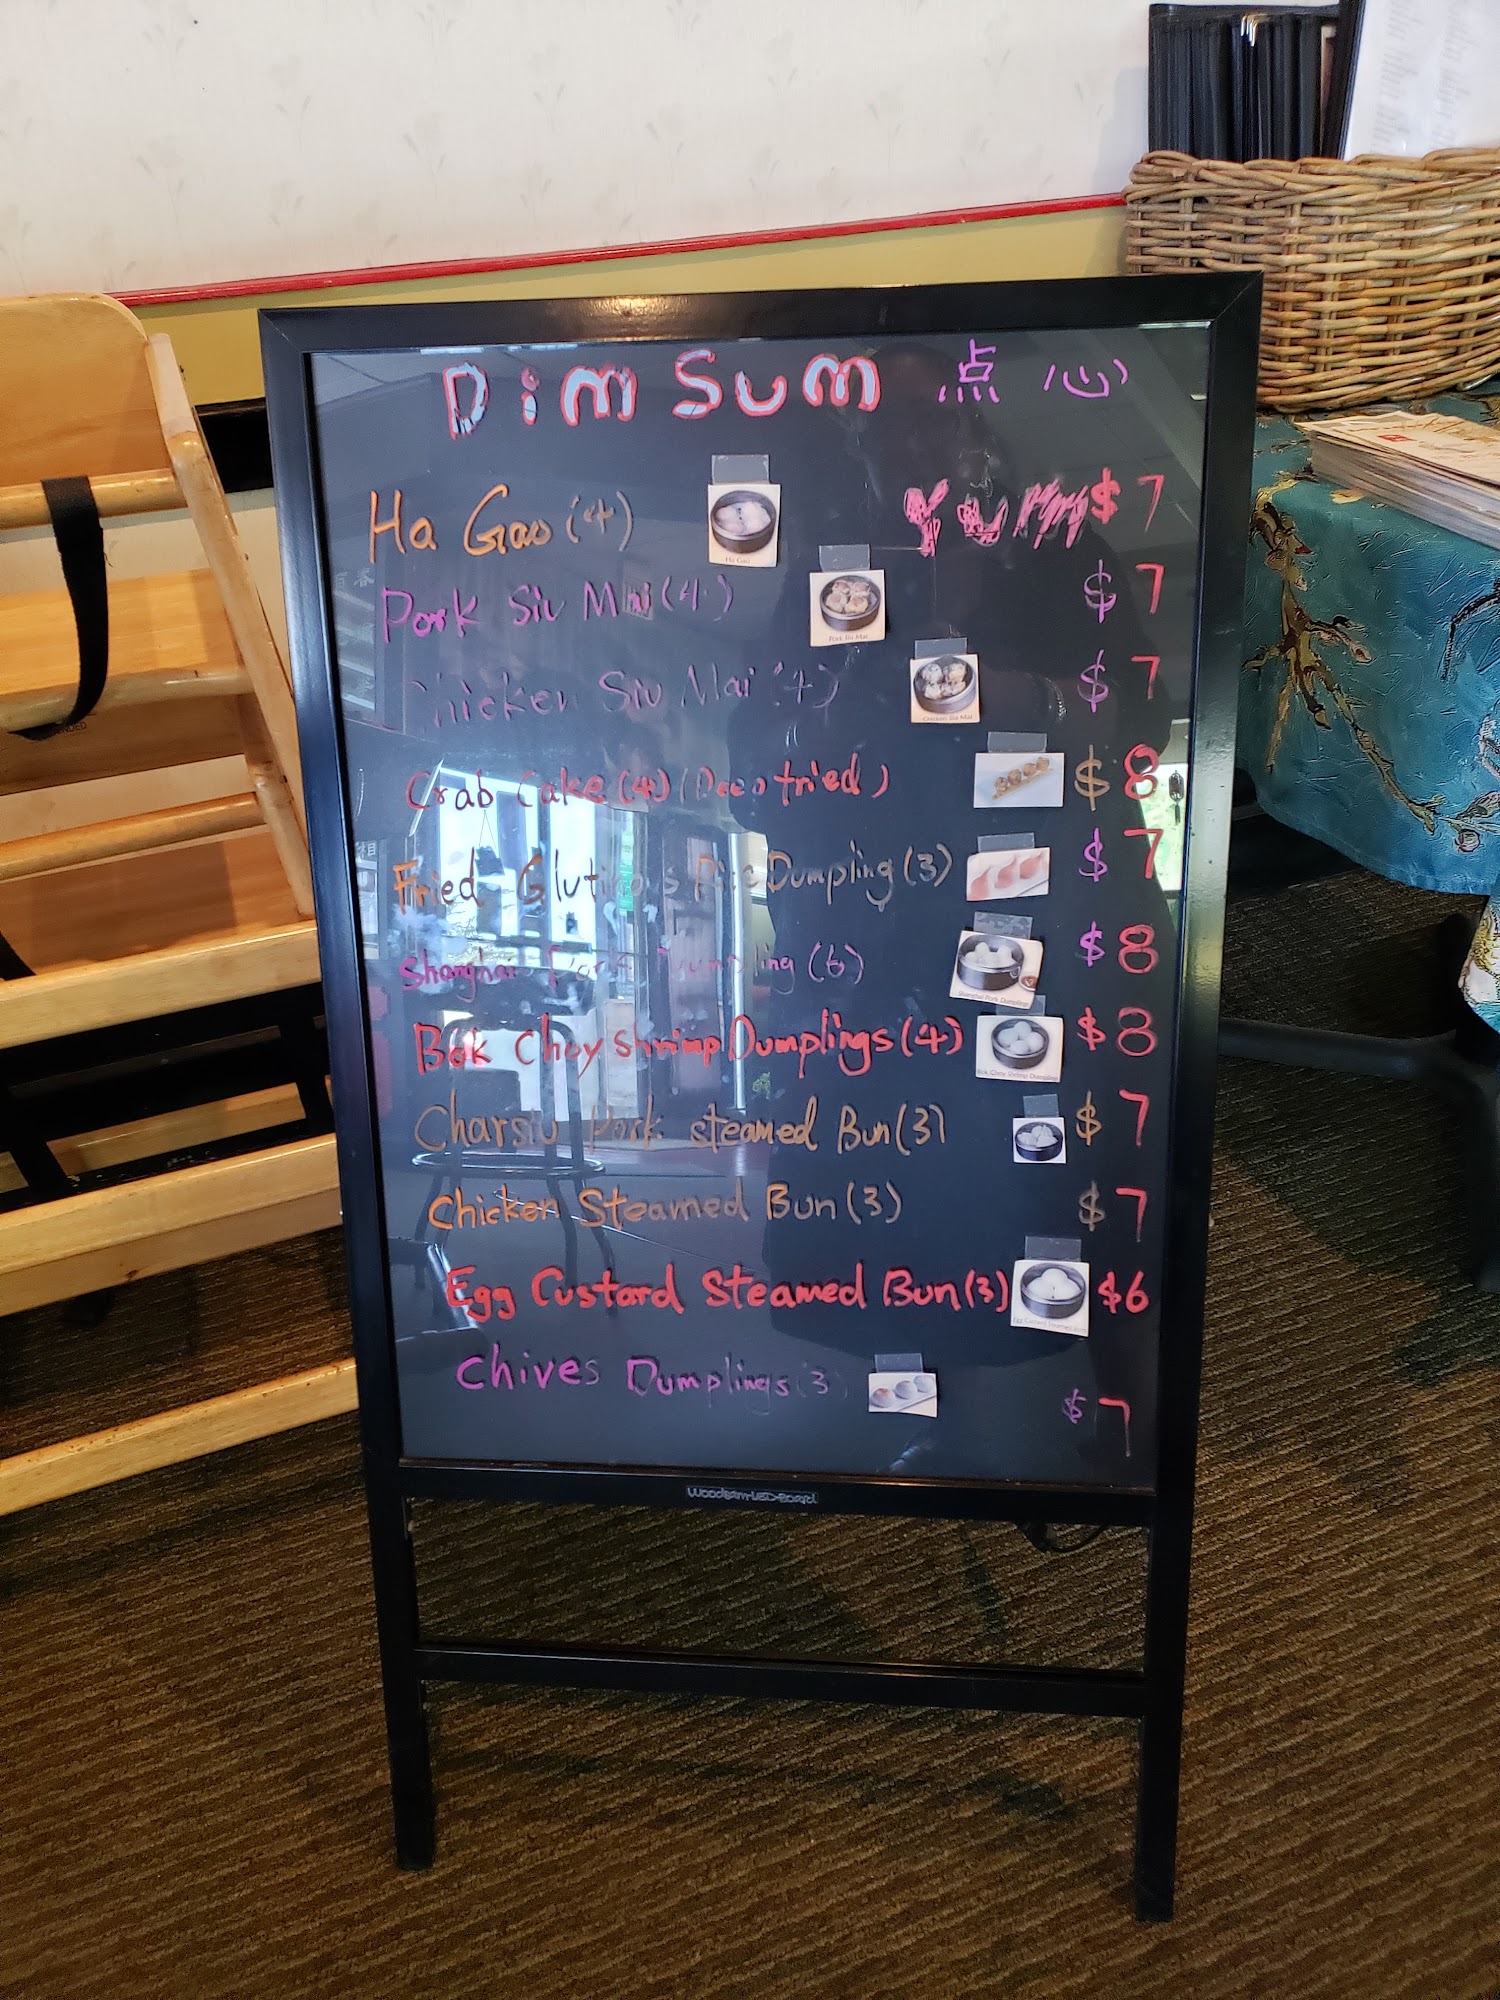 Dim Sum 点心
Ha Gao (4) Yum $7
Ha Gao
Pork Siu Mai (4) $7
Pork Siu Mai
Chicken Siu Mai (4) $7
Chicken Siu Mai
Crab Cake (4) (Deep fried) $8
Fried Glutinous Rice Dumpling (3) $7
Shanghai Pork Dumpling (6) $8
Shanghai Pork Dumplings
Bok Choy Shrimp Dumplings (4) $8
Bok Choy Shrimp Dumpling
Charsiu Pork steamed Bun (3) $7
Chicken Steamed Bun (3) $7
Egg Custard Steamed Bun (3) $6
Egg Custard Steamed Bun
Chives Dumplings (3) $7